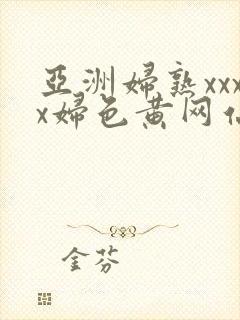 亞洲婦熟xxx
x婦色黄网
金芬